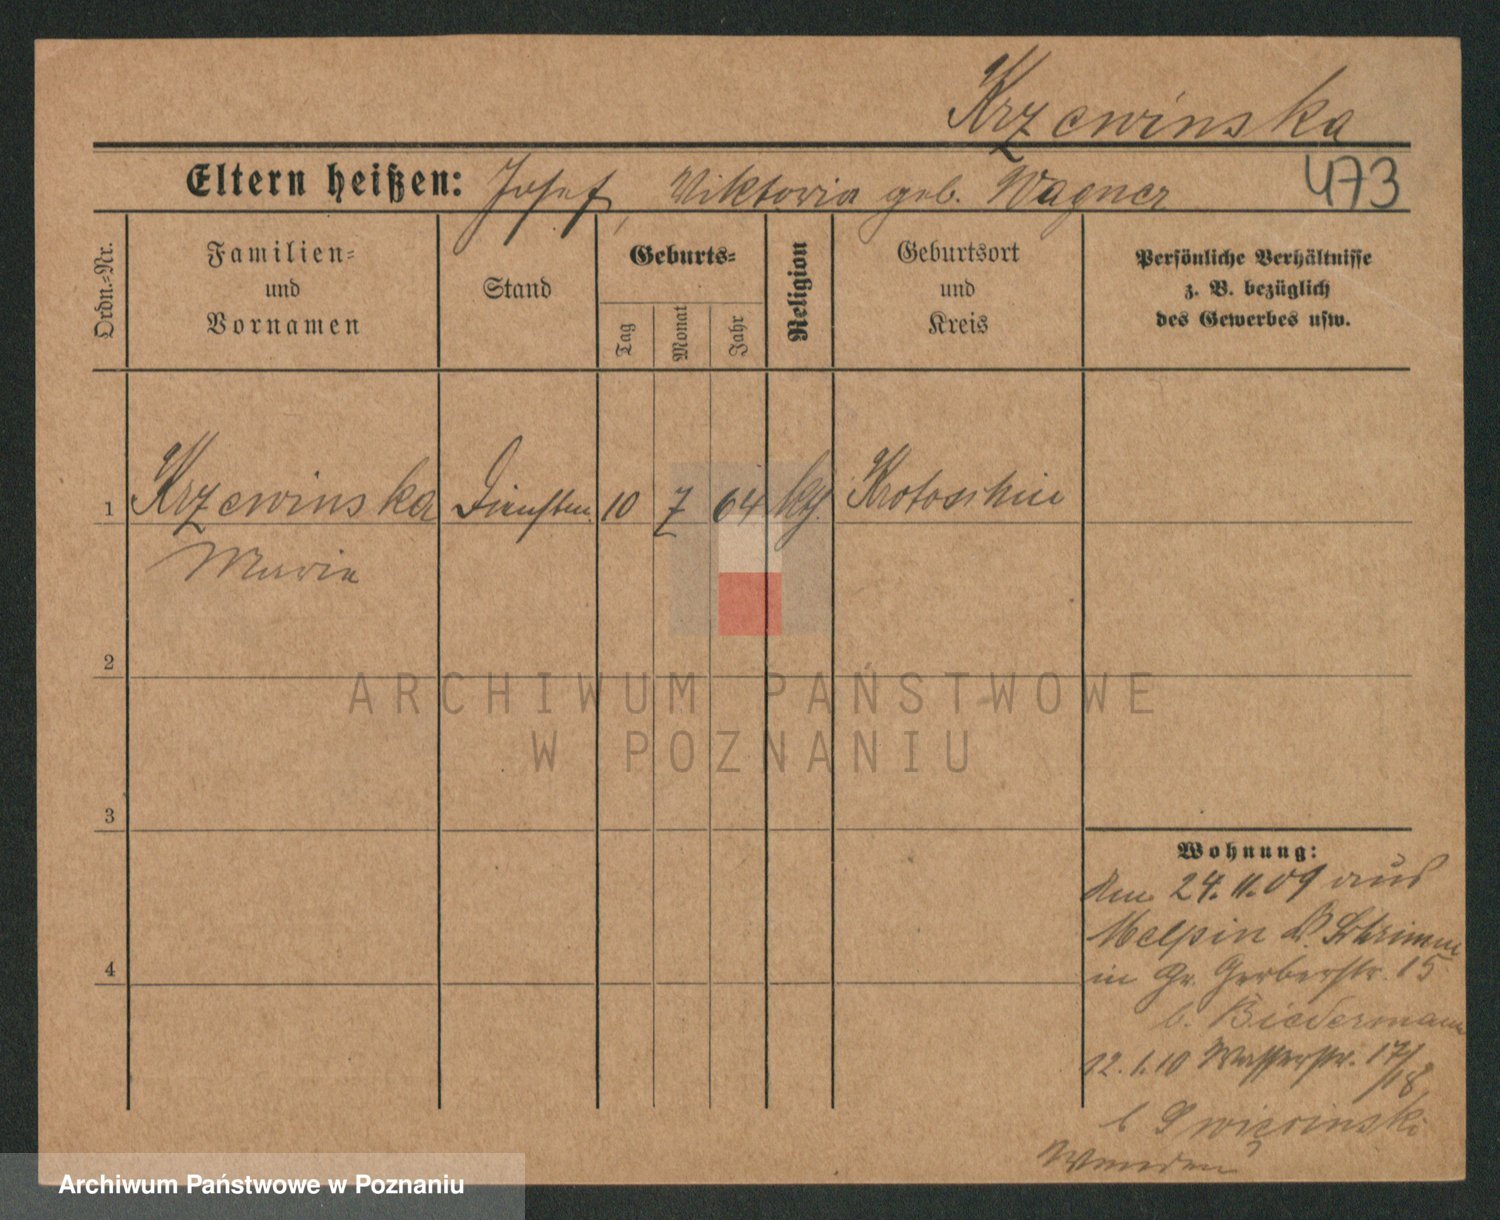 Krzewinska
Eltern heißen: Josef, Viktoria geb. Wagner 473
Ordn.-Nr.
Familien-
und
Vornamen
Stand
Geburts-
Tag
Monat
Jahr
Religion
Geburtsort
und
Kreis
Persönliche Verhältnisse
z. B. bezüglich
des Gewerbes usw.
1 Krzewinska 10 7 64 Krotoschin
Maria
2
ARCHIWUM PAŃSTWOWE
W POZNANIU
3
Wohnung:
24.11.09 aus
Melpin K. Schrimm
in Gr. Gerberstr. 15
b. Biedermann
12.1.10 Wasserstr. 17/18
b
4
Wenden
Archiwum Państwowe w Poznaniu